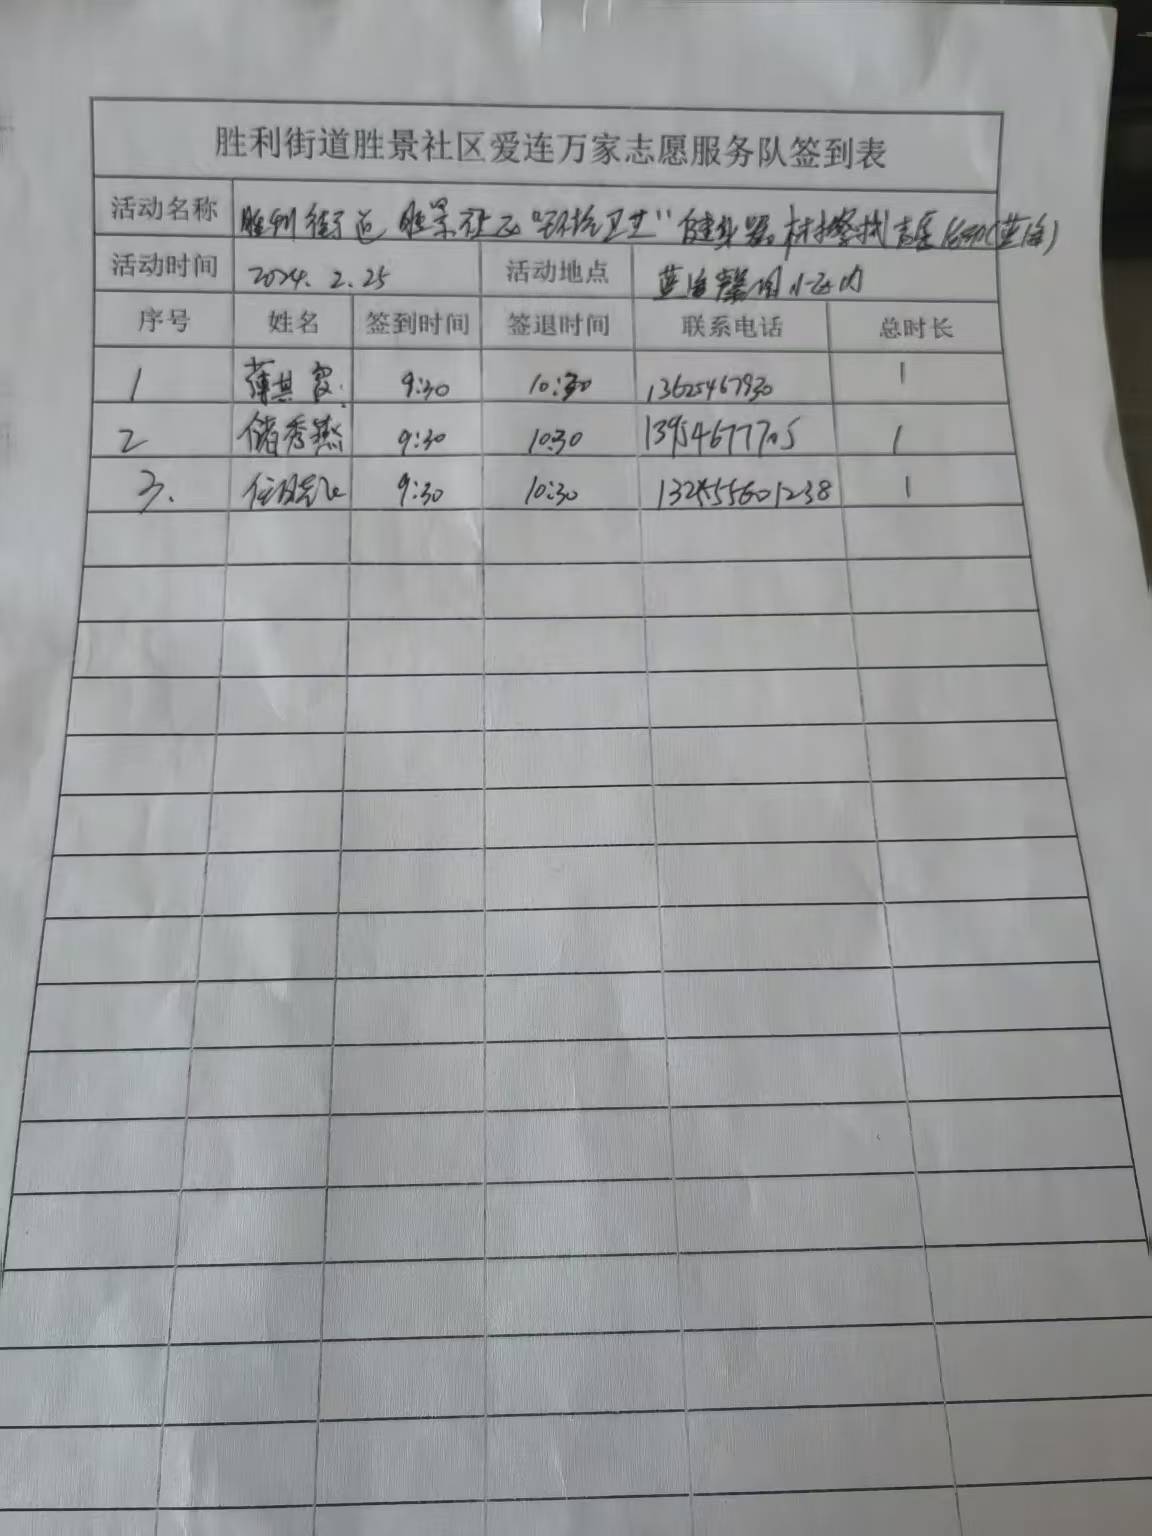 胜利街道胜景社区爱连万家志愿服务队签到表
活动名称 胜利街道胜景社区"环境卫生"健身器材擦拭志愿活动(蓝海)
活动时间 2024.2.25 活动地点 蓝海馨园小区内
序号 姓名 签到时间 签退时间 联系电话 总时长
1 薄其霞 9:30 10:30 13625467930 1
2 储秀燕 9:30 10:30 13954677705 1
3. 9:30 10:30 1